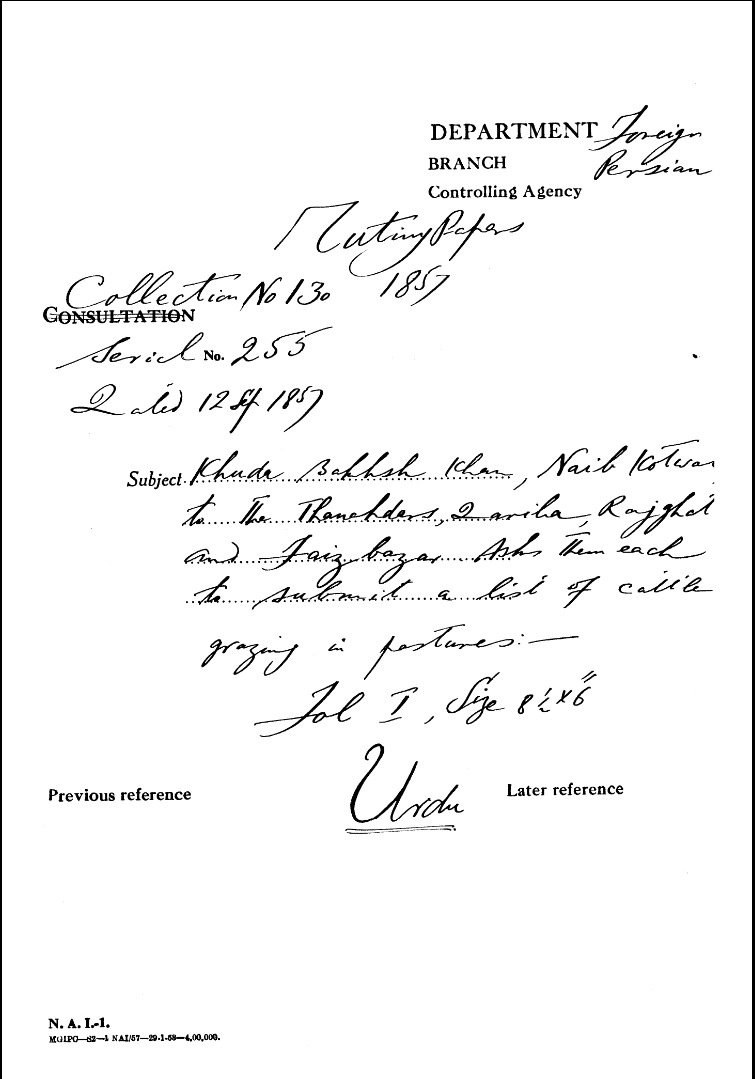 DEPARTMENT Foreign
BRANCH Persian
Controlling Agency
Mutiny Papers
1857
Collection No 130
CONSULTATION
Serial No. 255
Dated 12 Sep 1857
Subject Khuda Bakhsh Khan, Naib Kotwal
to the Thanehdars, Dariba, Rajghat
and Faiz bazar. Asks them each
to submit a list of cattle
grazing in pastures:—
Fol I, Size 8½" x 6"
Previous reference Urdu Later reference
N. A. I.-1.
MGIPC—S2—1 NAI/57—29-1-58—4,00,000.